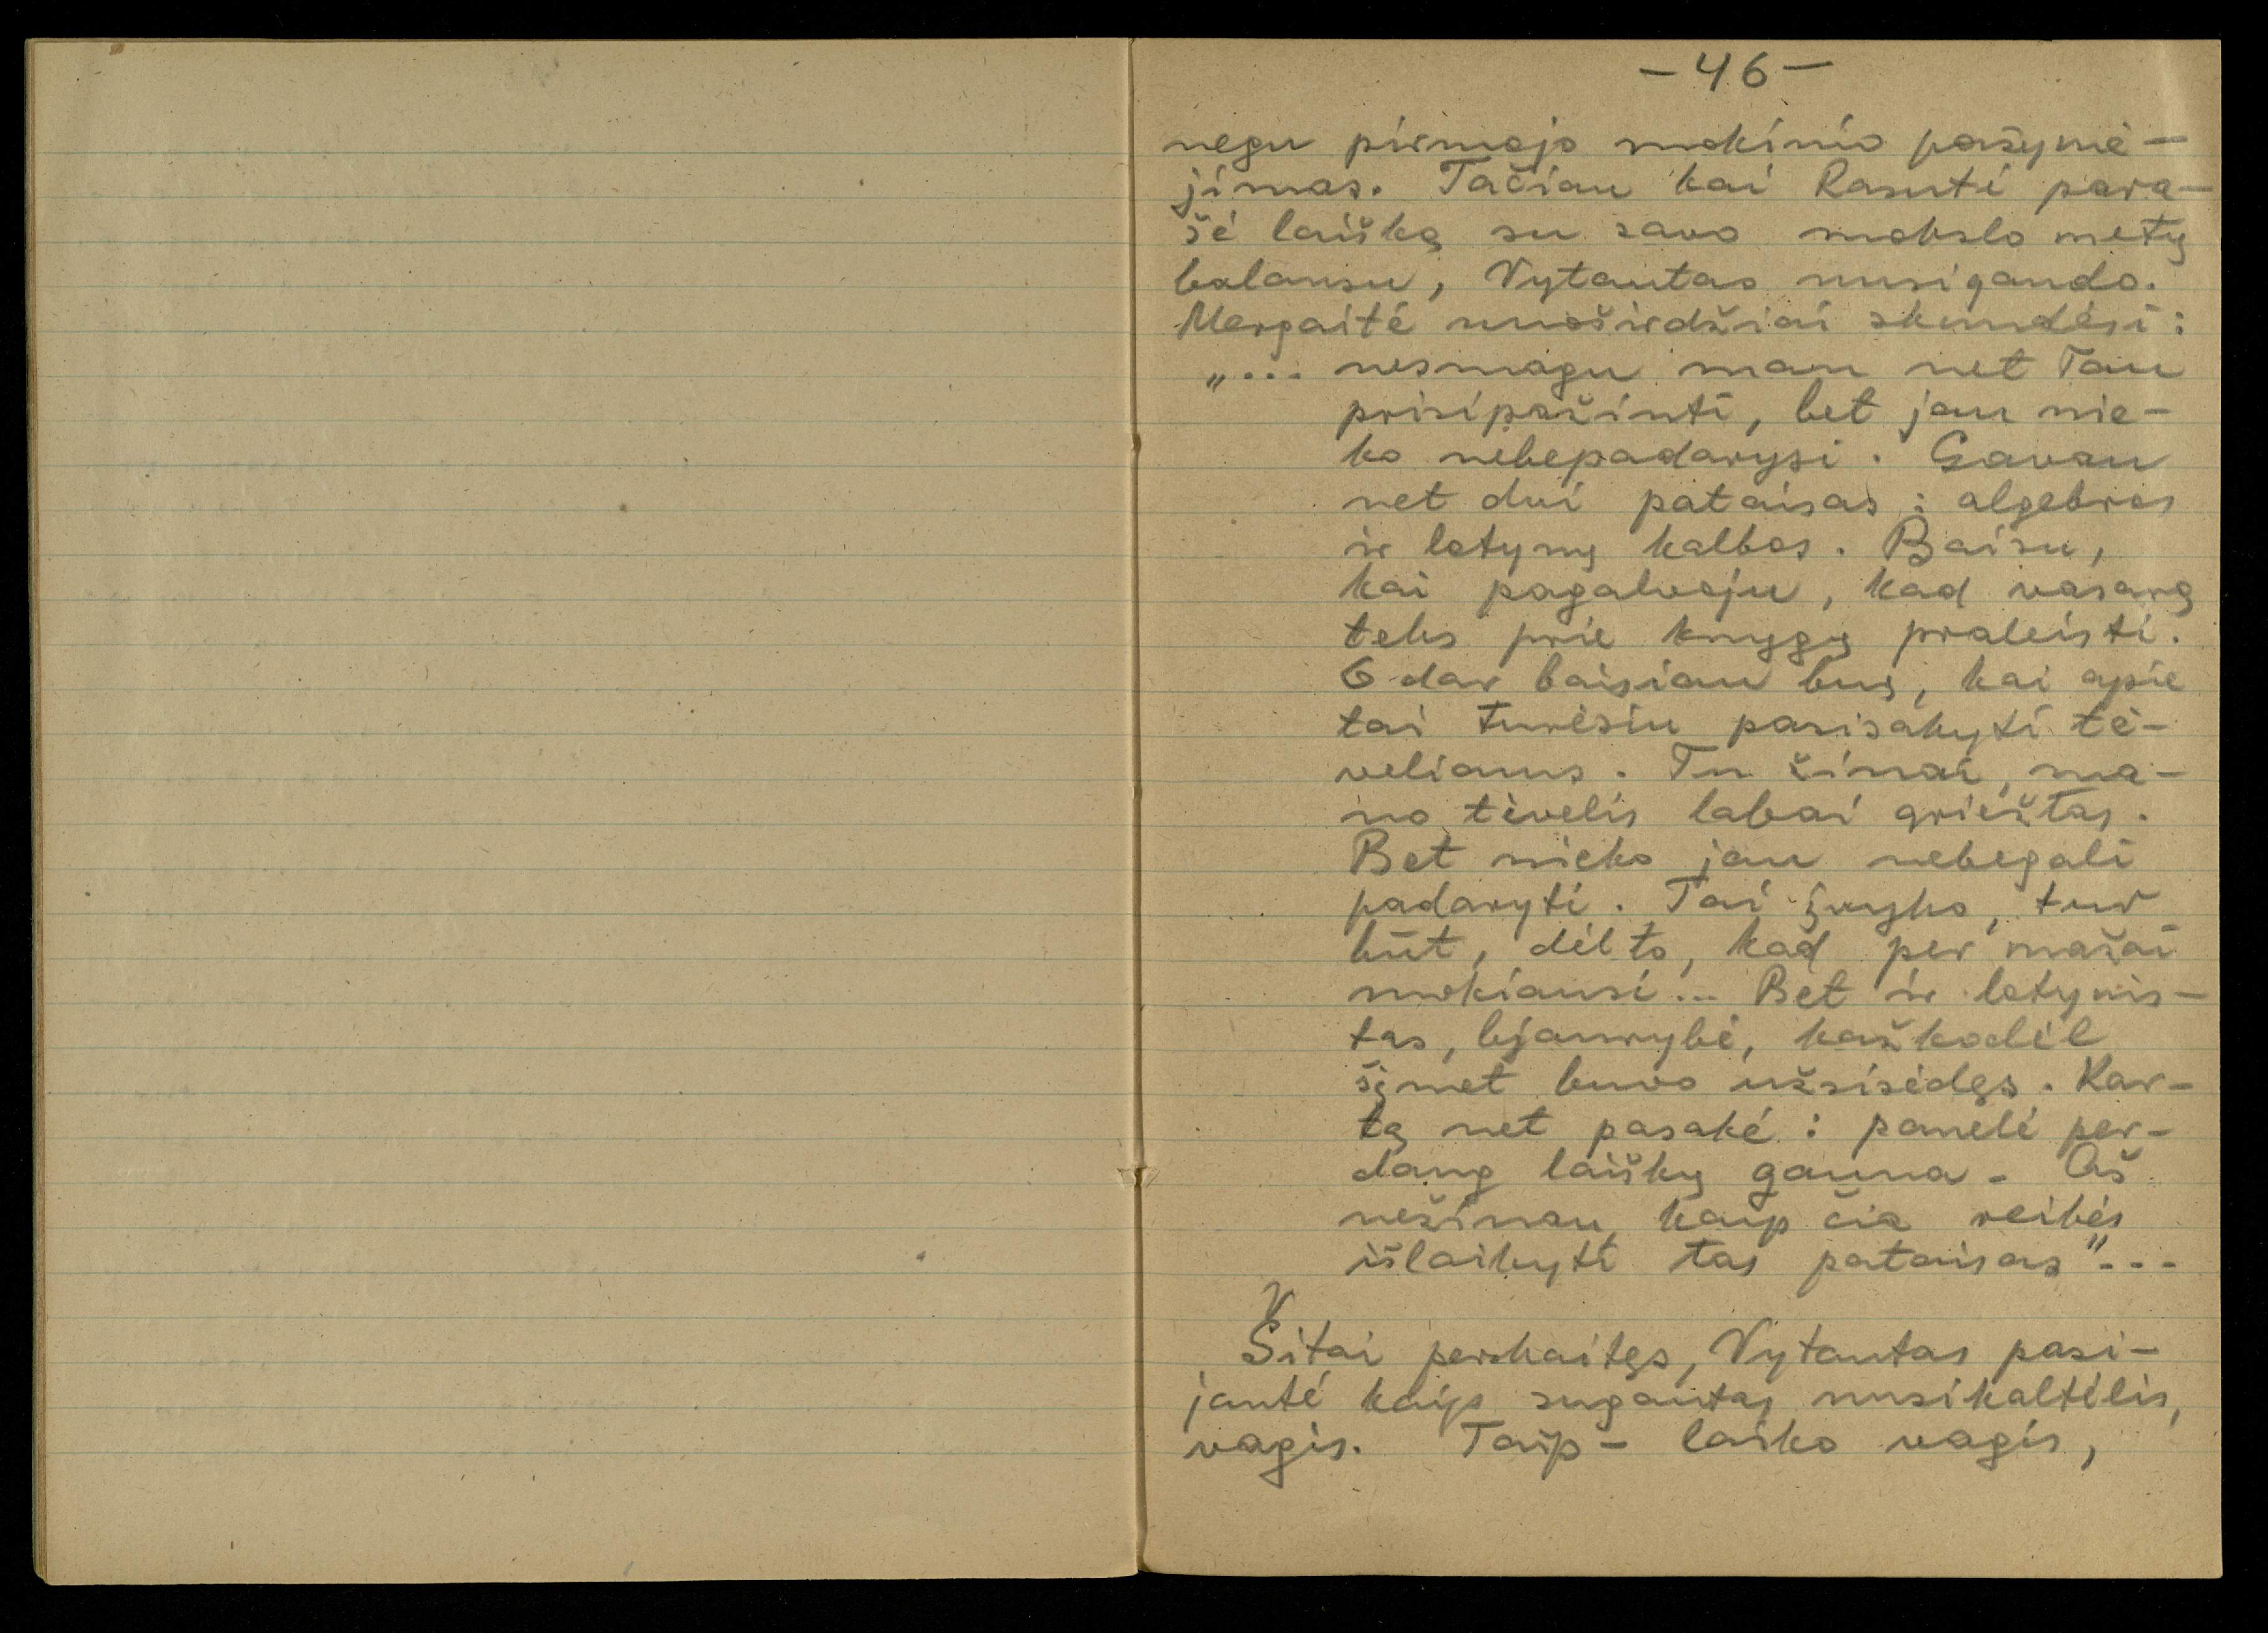 -46-
negu pirmojo mokinio pažymė-
jimas. Tačiau kai Rasutė para-
šė laišką su savo mokslo metų
balansu, Vytautas nusigando.
Mergaitė nuoširdžiai skundėsi:
„... nesmagu man net Tau
prisipažinti, bet jau nie-
ko nebepadarysi. Gavau
net dvi pataisas: algebros
ir lotynų kalbos. Baisu,
kai pagalvoju, kad vasarą
teks prie knygų praleisti.
O dar baisiau bus, kai apie
tai turėsiu pasisakyti tė-
veliams. Tu žinai, ma-
no tėvelis labai griežtas.
Bet nieko jau nebegali
padaryti. Tai įvyko, tur
būt, dėl to, kad per mažai
mokiausi... Bet ir lotynis-
tas, bjaurybė, kažkodėl
šįmet buvo užsisėdęs. Kar-
tą net pasakė: panelė per-
daug laiškų gauna. Aš
nežinau, kaip čia reikės
išlaikyti tas pataisas"...
Šitai perskaitęs, Vytautas pasi-
jautė kaip sugautas nusikaltėlis,
vagis. Taip - laiko vagis,